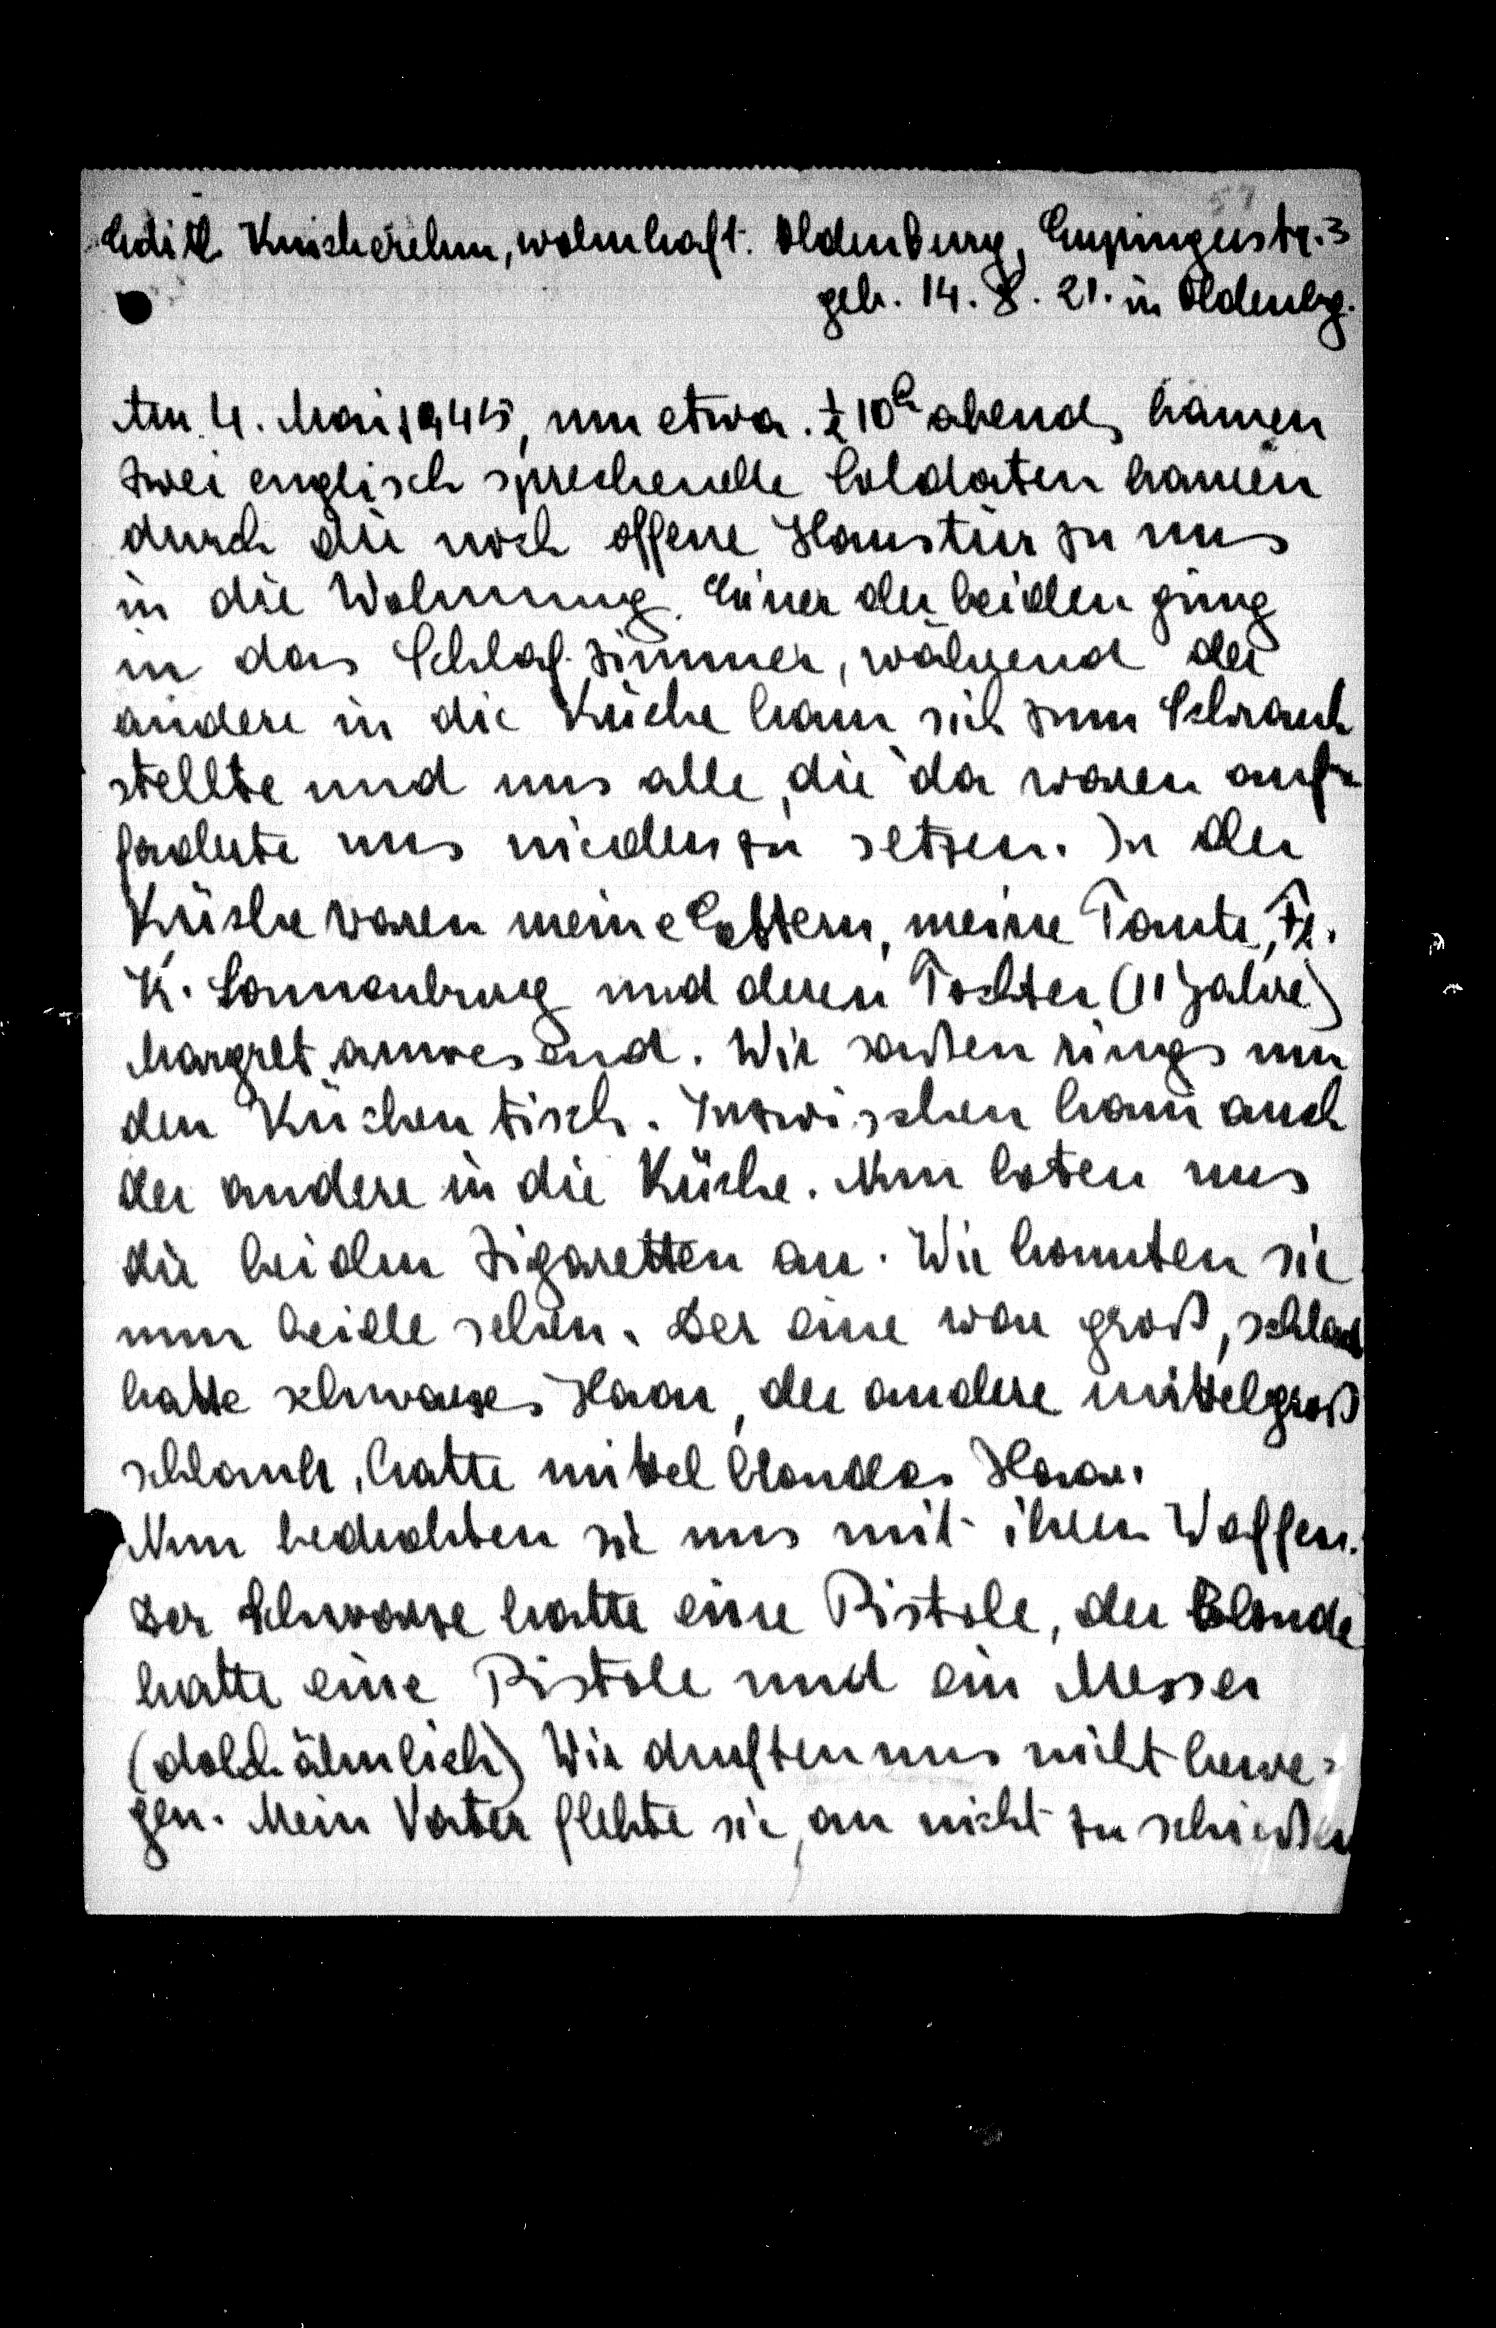 Edith Knickrehm, wohnhaft. Oldenburg, Eupingerstr. 3
geb. 14. 8. 21. in Oldenbg.
Am 4. Mai 1945, um etwa ½ 10h abends kamen
zwei englisch sprechende Soldaten kamen
durch die noch offene Haustür zu uns
in die Wohnung. Einer der beiden ging
in das Schlafzimmer, während der
andere in die Küche kam sich zum Schrank
stellte und uns alle, die da waren auf-
forderte uns niederzu setzen. In der
Küche waren meine Eltern, meine Tante, Fr.
K. Sonnenburg und deren Tochter (11 Jahre)
Margret anwesend. Wir saßen rings um
den Küchentisch. Inzwischen kam auch
der andere in die Küche. Nun boten uns
die beiden Zigaretten an. Wir konnten sie
nun beide sehen. Der eine war groß, schlank
hatte schwarzes Haar, der andere mittelgroß
schlank, hatte mittelblondes Haar.
Nun bedrohten sie uns mit ihren Waffen.
Der Schwarze hatte eine Pistole, der Blonde
hatte eine Pistole und ein Messer
(dolchähnlich) Wir durften uns nicht bewe-
gen. Mein Vater flehte sie, an nicht zu schießen